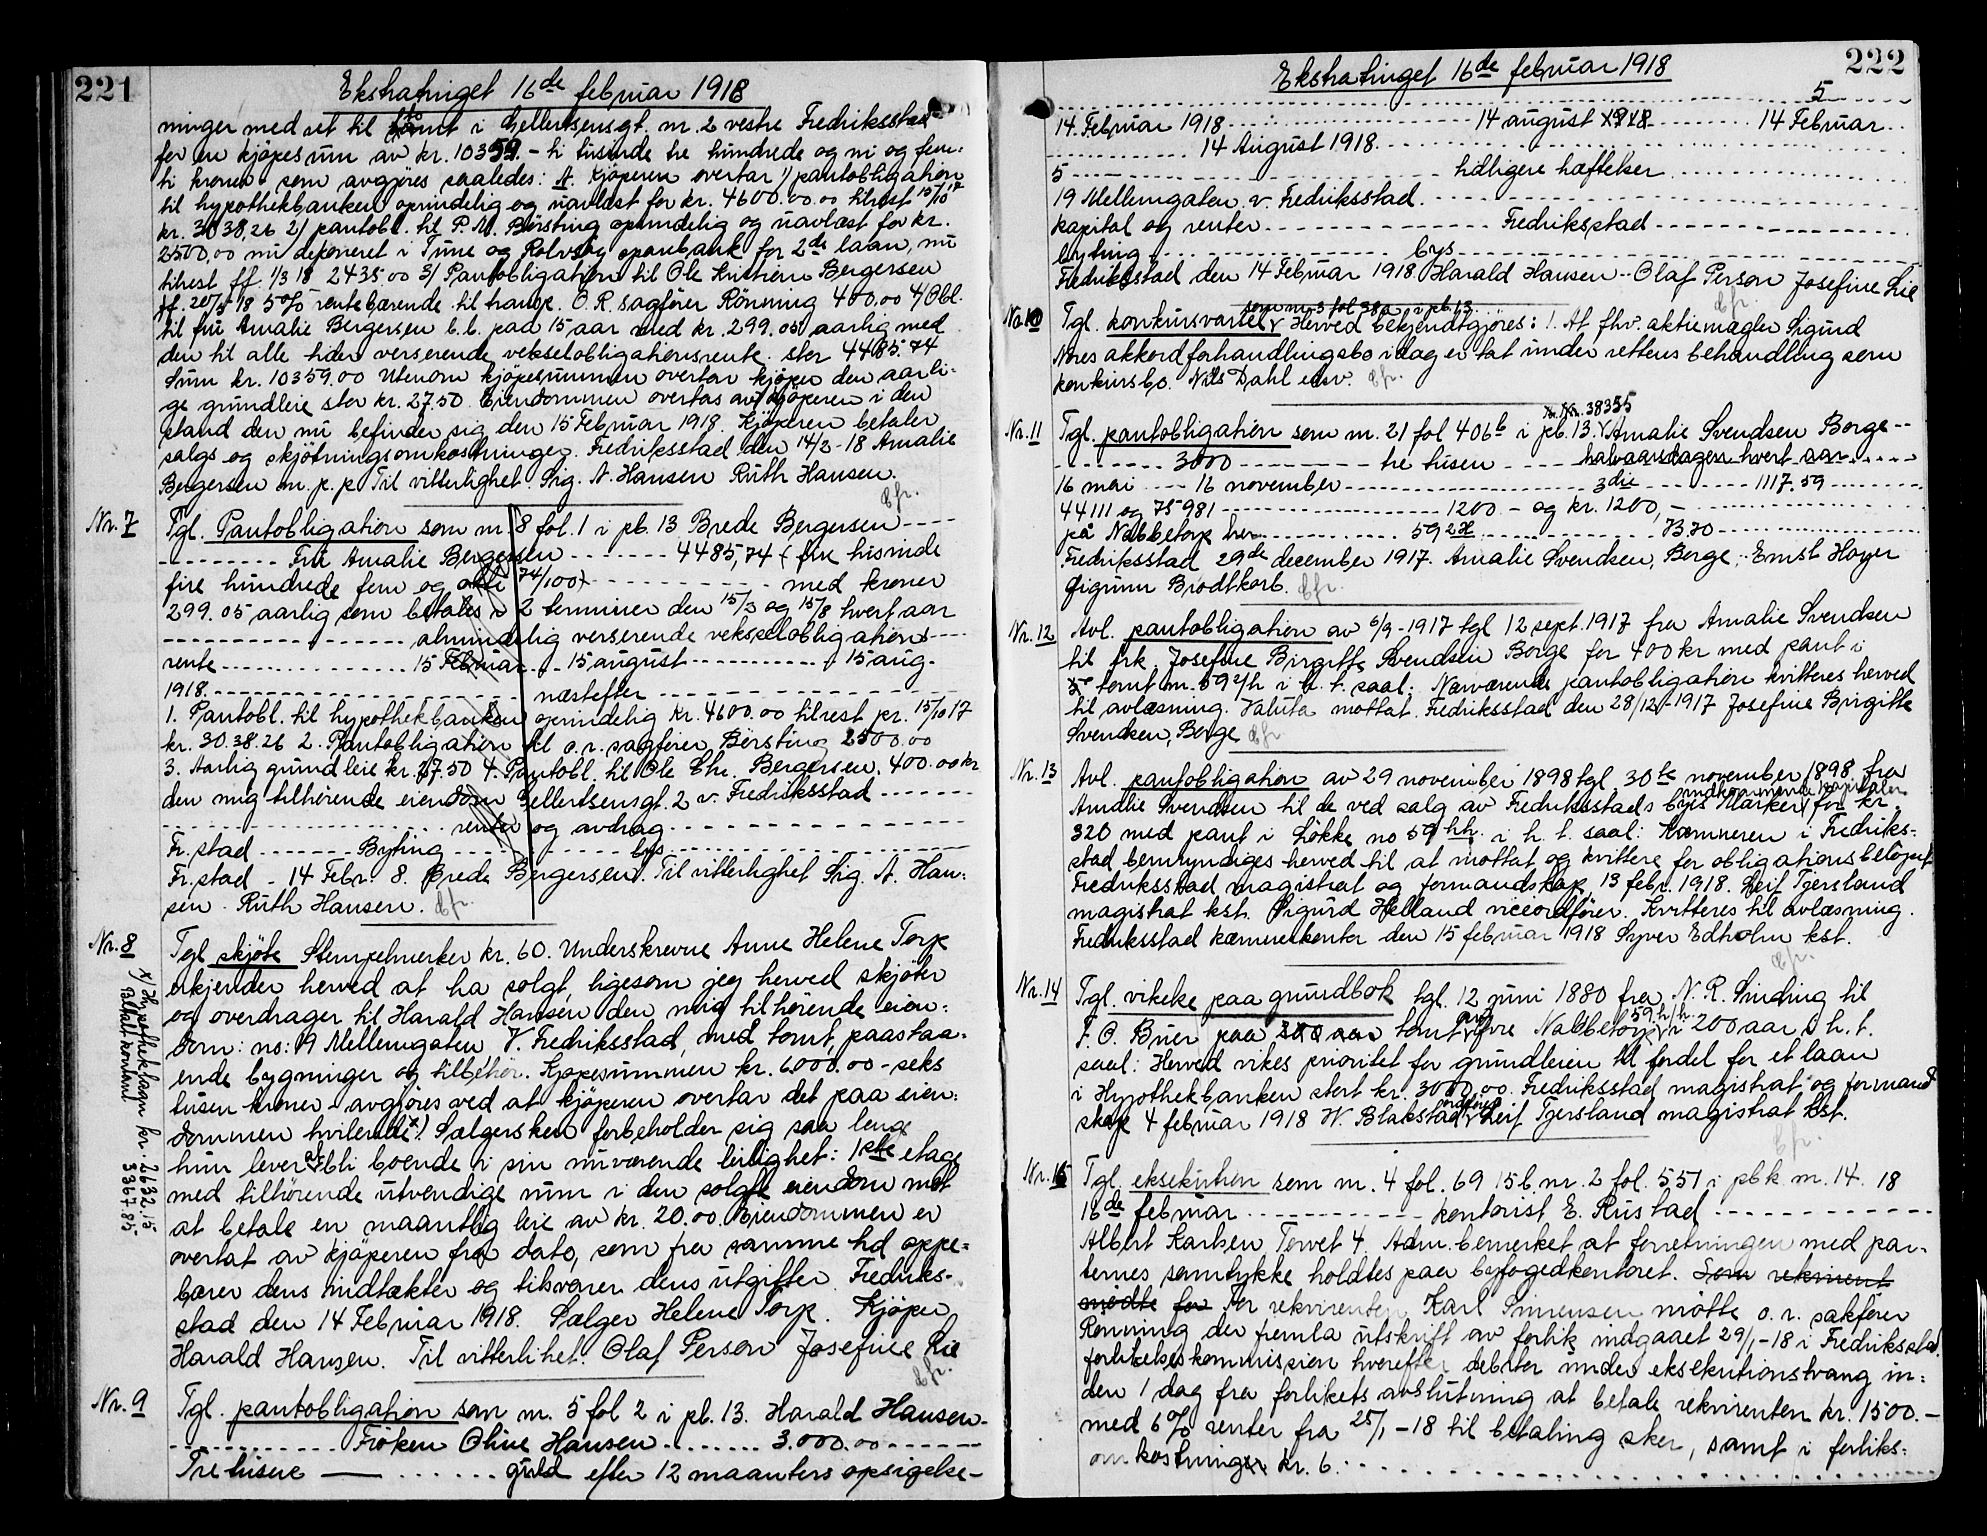 221
Ekstratinget 16de februar 1918
ninger med ret til tomt i Gellertsensgt. nr. 2 vestre Fredriksstad
for en kjøpesum av kr. 10359.- ti tusinde tre hundrede og ni og fem-
ti kroner som avgjøres saaledes: A. Kjøperen overtar 1/ pantobligation
til hypothekbanken oprindelig og uavlæst for kr. 4600.00.00 tilrest 15/10 17
kr. 3038,26 2/ pantobl. til P. M. Børsting oprindelig og uavlæst for kr.
2500,00 nu deponeret i Tune og Rolvsøy sparebank for 2det laan, nu
tilrest ff. 1/3 18 2435.00 3/ Pantobligation til Ole Kristian Bergersen
ff. 20/5 18 5% rentebærende til transp. O.R. sagfører Rönning 400.00 4/ Obl.
til fru Amalie Bergersen b.b. paa 15 aar med kr. 299.05 aarlig med
den til alle tider verserende vekselobligationsrente. stor 4485.74
Sum kr. 10359.00 Utenom kjøpesummen overtar kjøper den aarli-
ge grundleie stor kr. 27.50 Eiendommen overtas av kjøperen i den
stand den nu befinder sig den 15 Februar 1918. Kjøperen betaler
salgs og skjøtningsomkostninger. Fredriksstad den 14/2-18 Amalie
Bergersen m. p. p. Til vitterlighet: Sig. A. Hansen Ruth Hansen.
Nr. 7
Tgl. Pantobligation som nr. 8 fol. 1 i pb. 13 Brede Bergersen ----
--------- Fru Amalie Bergersen --------- 4485,74 ( fire tusinde
fire hundrede fem og otti 74/100) ------------ med kroner
299.05 aarlig som betales i 2 terminer den 15/3 og 15/8 hvert aar
----------------- almindelig verserende vekselobligations----
rente ------------ 15 Februar - 15 august ------------ 15 aug.
1918. ---------------------- næstefter ------------------
1. Pantobl. til hypothekbanken oprindelig Kr. 4600.00 tilrest pr. 15/10 17
kr. 30.38.26 2. Pantobligation til o.r. sagfører Børsting 2500.00
3. Aarlig grundleie kr. 27.50 4. Pantobl. til Ole Chr. Bergersen. 400.00 kr
den mig tilhörende eiendom Gellertsensgt. 2 v. Fredriksstad -------
------------------ renter og avdrag ------------------
Fr. stad ------- Byting ------------ bys ------------------
Fr. stad - 14 Febr. 8. Brede Bergersen. Til vitterlighet Sig. A. Han-
sen Ruth Hansen.
Nr. 8
Tgl skjöte Stempelmerker kr. 60. Underskrevne Anne Helene Torp
erkjender herved at ha solgt, ligesom jeg herved skjöter
og overdrager til Harald Hansen den mig tilhörende eien-
dom: no: 19 Mellemgaten V. Fredriksstad, med tomt, paastaa-
ende bygninger og tilbehör. Kjøpesummen kr. 6000.00 - seks
tusen kroner - avgjöres ved at kjöperen overtar det paa eien-
dommen hvilende x) Sælgersken forbeholder sig saa lenge
hun lever at bli boende i sin nuværende leilighet: 1ste etage
med tilhörende utvendige rum i den solgte eiendom mot
at betale en maantlig leie av kr. 20.00 Eiendommen er
overtat av kjöperen fra dato, som fra samme tid oppe-
bærer dens indtækter og tilsvarer dens utgifter. Fredriks-
stad den 14 Februar 1918. Sælger Helene Torp. Kjöper
Harald Hansen. Til vitterlihet: Olaf Person Josefine Lie
x) Hypotheklaan kr. 2632.15
Betalt kontant 3367.85.
Nr. 9
Tgl. pantobligation som nr. 5 fol 2 i pb. 13. Harald Hansen -
------------ Fröken Oline Hansen --------- 3.000.00 ------
Tre tusen --- ------ guld efter 12 maanters opsigelse -
222
Ekstratinget 16de februar 1918
5
14. Februar 1918 ---------------- 14 august 1918 --------- 14 Februar ..
------------ 14 August 1918. ------------------
5 ------------------------ tidligere hæftelser ------------
19 Mellemgaten v. Fredriksstad. ------------------
kapital og renter ---------------- Fredriksstad ------------
byting ------------------ bys ------------------
Fredriksstad den 14 Februar 1918 Harald Hansen -- Olaf Person Josefine Lie
No 10
som nr 3 fol 38a i pb. 13
Tgl. konkursvarsel Herved bekjendtgjöres: 1. At fhv. aktiemægler Sigurd
Nores akkordforhandlingsbo idag er tat under rettens behandling som
konkursbo. Nils Dahl esv.
Nr. 11
Nr. 38355
Tgl. pantobligation som nr. 21 fol 406b i pb. 13. Amalie Svendsen Borge --
--------- 3000 ------------ tre tusen ------ halvaarsdagen hvert aar ----
16 mai ---- 16 november ------------------ 3die ------------ 1117.59 ------
44111 og 75981 ------------------ 1200 - og kr. 1200,- ------------
på Nabbetorp her ------------ 59 2H ------------ 73.70 ------------
Fredriksstad 29de december 1917. Amalie Svendsen, Borge - Ernst Hoyer
Sigrunn Brodtkorb.
Nr. 12
Avl. pantobligation av 6/9-1917 tgl 12 sept. 1917 fra Amalie Svendsen
til frk. Josefine Birgitte Svendsen Borge for 400 kr med pant i
tomt nr. 59 2/h i h. t. saal: Nærværende pantobligation kvitteres herved
til avlæsning. Valuta mottat. Fredriksstad den 28/12-1917 Josefine Birgitte
Svendsen, Borge
Nr. 13
Avl. pantobligation av 29 november 1898 tgl 30te november 1898 fra
Amalie Svendsen til de ved salg av Fredriksstads bys Marker indkommende kapitaler for kr.
320 med pant i Lökke no 59 hh. i h. t. saal: Kæmneren i Fredriks-
stad bemyndiges herved til at mottat og kvittere for obligationsbelöpet.
Fredriksstad magistrat og formandskap 13 febr. 1918. Leif Tjersland
magistrat kst. Sigurd Helland viceordförer. Kvitteres til avlæsning.
Fredriksstad kæmnerkontor den 15 februar 1918 Syver Edholm kst.
Nr. 14
Tgl. vikelse paa grundbok tgl. 12 juni 1880 fra N. R. Sinding til
F. O. Buer paa tomt av övre Nabbetorp 59 h/h i 200 aar i h. t.
saal: Herved vikes prioritet for grundleien til fordel for et laan
i Hypothekbanken stort kr. 3000,00. Fredriksstad magistrat og formand
skap 4 februar 1918 W. Blakstad ordförer Leif Tjersland magistrat kst.
Nr. 15
Tgl. eksekution som nr. 4 fol. 69 15b. nr. 2 fol. 551 i pbk. nr. 14. 18
16de februar ------------ kontorist E. Rustad ------------
Albert Karlsen Torvet 4 Adm. bemerket at forretningen med par-
ternes samtykke holdtes paa byfogedkontoret. Som rekvirent
mødte for For rekvirenten Karl Simensen mötte o.r. sakförer
Rönning der fremla utskrift av forlik indgaaet 29/1-18 i Fredriksstad.
forlikelseskommission hvorefter debitor under eksekutionstvang in-
den 1 dag fra forlikets avslutning at betale rekvirenten kr. 1500.-
med 6% renter fra 25/1-18 til betaling sker, samt i forliks-
omkostninger kr. 6. ------------------